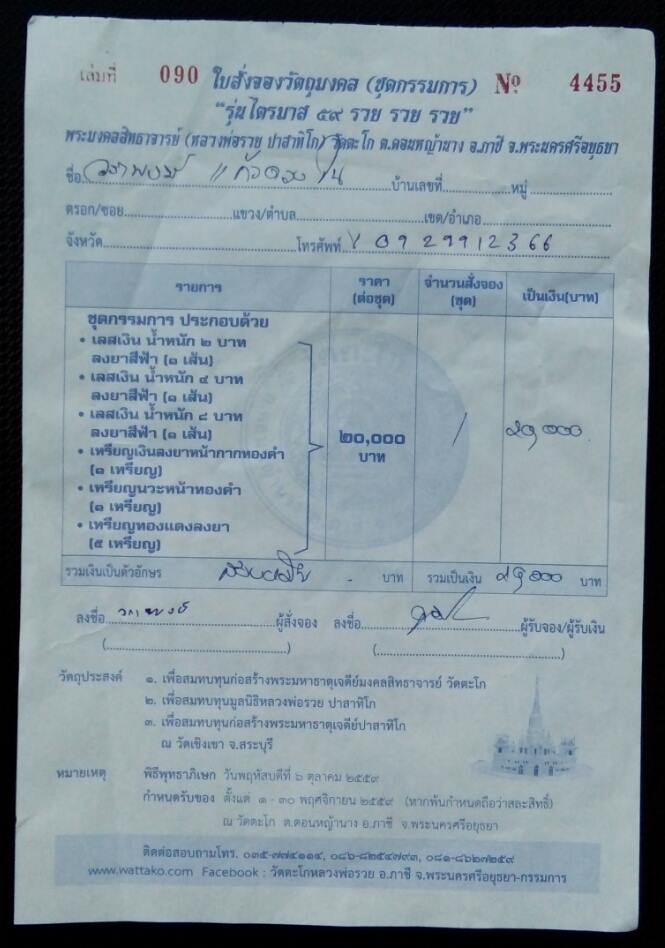 เล่มที่ 090 ใบสั่งจองวัตถุมงคล (ชุดกรรมการ) Nº 4455
"รุ่นไตรมาส ๕๙ รวย รวย รวย"
พระมงคลสิทธาจารย์ (หลวงพ่อรวย ปาสาทิโก) วัดตะโก ต.ดอนหญ้านาง อ.ภาชี จ.พระนครศรีอยุธยา
ชื่อ วรพงษ์ บ้านเลขที่ หมู่
ตรอก/ซอย แขวง/ตำบล เขต/อำเภอ
จังหวัด โทรศัพท์ 0929912366
รายการ ราคา (ต่อชุด) จำนวนสั่งจอง (ชุด) เป็นเงิน(บาท)
ชุดกรรมการ ประกอบด้วย
• เลสเงิน น้ำหนัก ๒ บาท
ลงยาสีฟ้า (๑ เส้น)
• เลสเงิน น้ำหนัก ๔ บาท
ลงยาสีฟ้า (๑ เส้น)
• เลสเงิน น้ำหนัก ๘ บาท
ลงยาสีฟ้า (๑ เส้น) ๒๐,๐๐๐ / ๒๐,๐๐๐
• เหรียญเงินลงยาหน้ากากทองคำ บาท
(๑ เหรียญ)
• เหรียญนวะหน้าทองคำ
(๑ เหรียญ)
• เหรียญทองแดงลงยา
(๕ เหรียญ)
รวมเงินเป็นตัวอักษร สองหมื่น - บาท รวมเป็นเงิน ๒๐,๐๐๐ บาท
ลงชื่อ วรพงษ์ ผู้สั่งจอง ลงชื่อ ผู้รับจอง/ผู้รับเงิน
( ) ( )
วัตถุประสงค์ ๑. เพื่อสมทบทุนก่อสร้างพระมหาธาตุเจดีย์มงคลสิทธาจารย์ วัดตะโก
๒. เพื่อสมทบทุนมูลนิธิหลวงพ่อรวย ปาสาทิโก
๓. เพื่อสมทบทุนก่อสร้างพระมหาธาตุเจดีย์ปาสาทิโก
ณ วัดเชิงเขา จ.สระบุรี
หมายเหตุ พิธีพุทธาภิเษก วันพฤหัสบดีที่ ๖ ตุลาคม ๒๕๕๙
กำหนดรับของ ตั้งแต่ ๑ - ๓๐ พฤศจิกายน ๒๕๕๙ (หากพ้นกำหนดถือว่าสละสิทธิ์)
ณ วัดตะโก ต.ดอนหญ้านาง อ.ภาชี จ.พระนครศรีอยุธยา
ติดต่อสอบถามโทร. ๐๓๕-๗๗๔๑๑๔, ๐๘๖-๘๒๕๔๗๙๓, ๐๘๑-๘๖๒๗๒๕๙
www.wattako.com Facebook : วัดตะโกหลวงพ่อรวย อ.ภาชี จ.พระนครศรีอยุธยา-กรรมการ